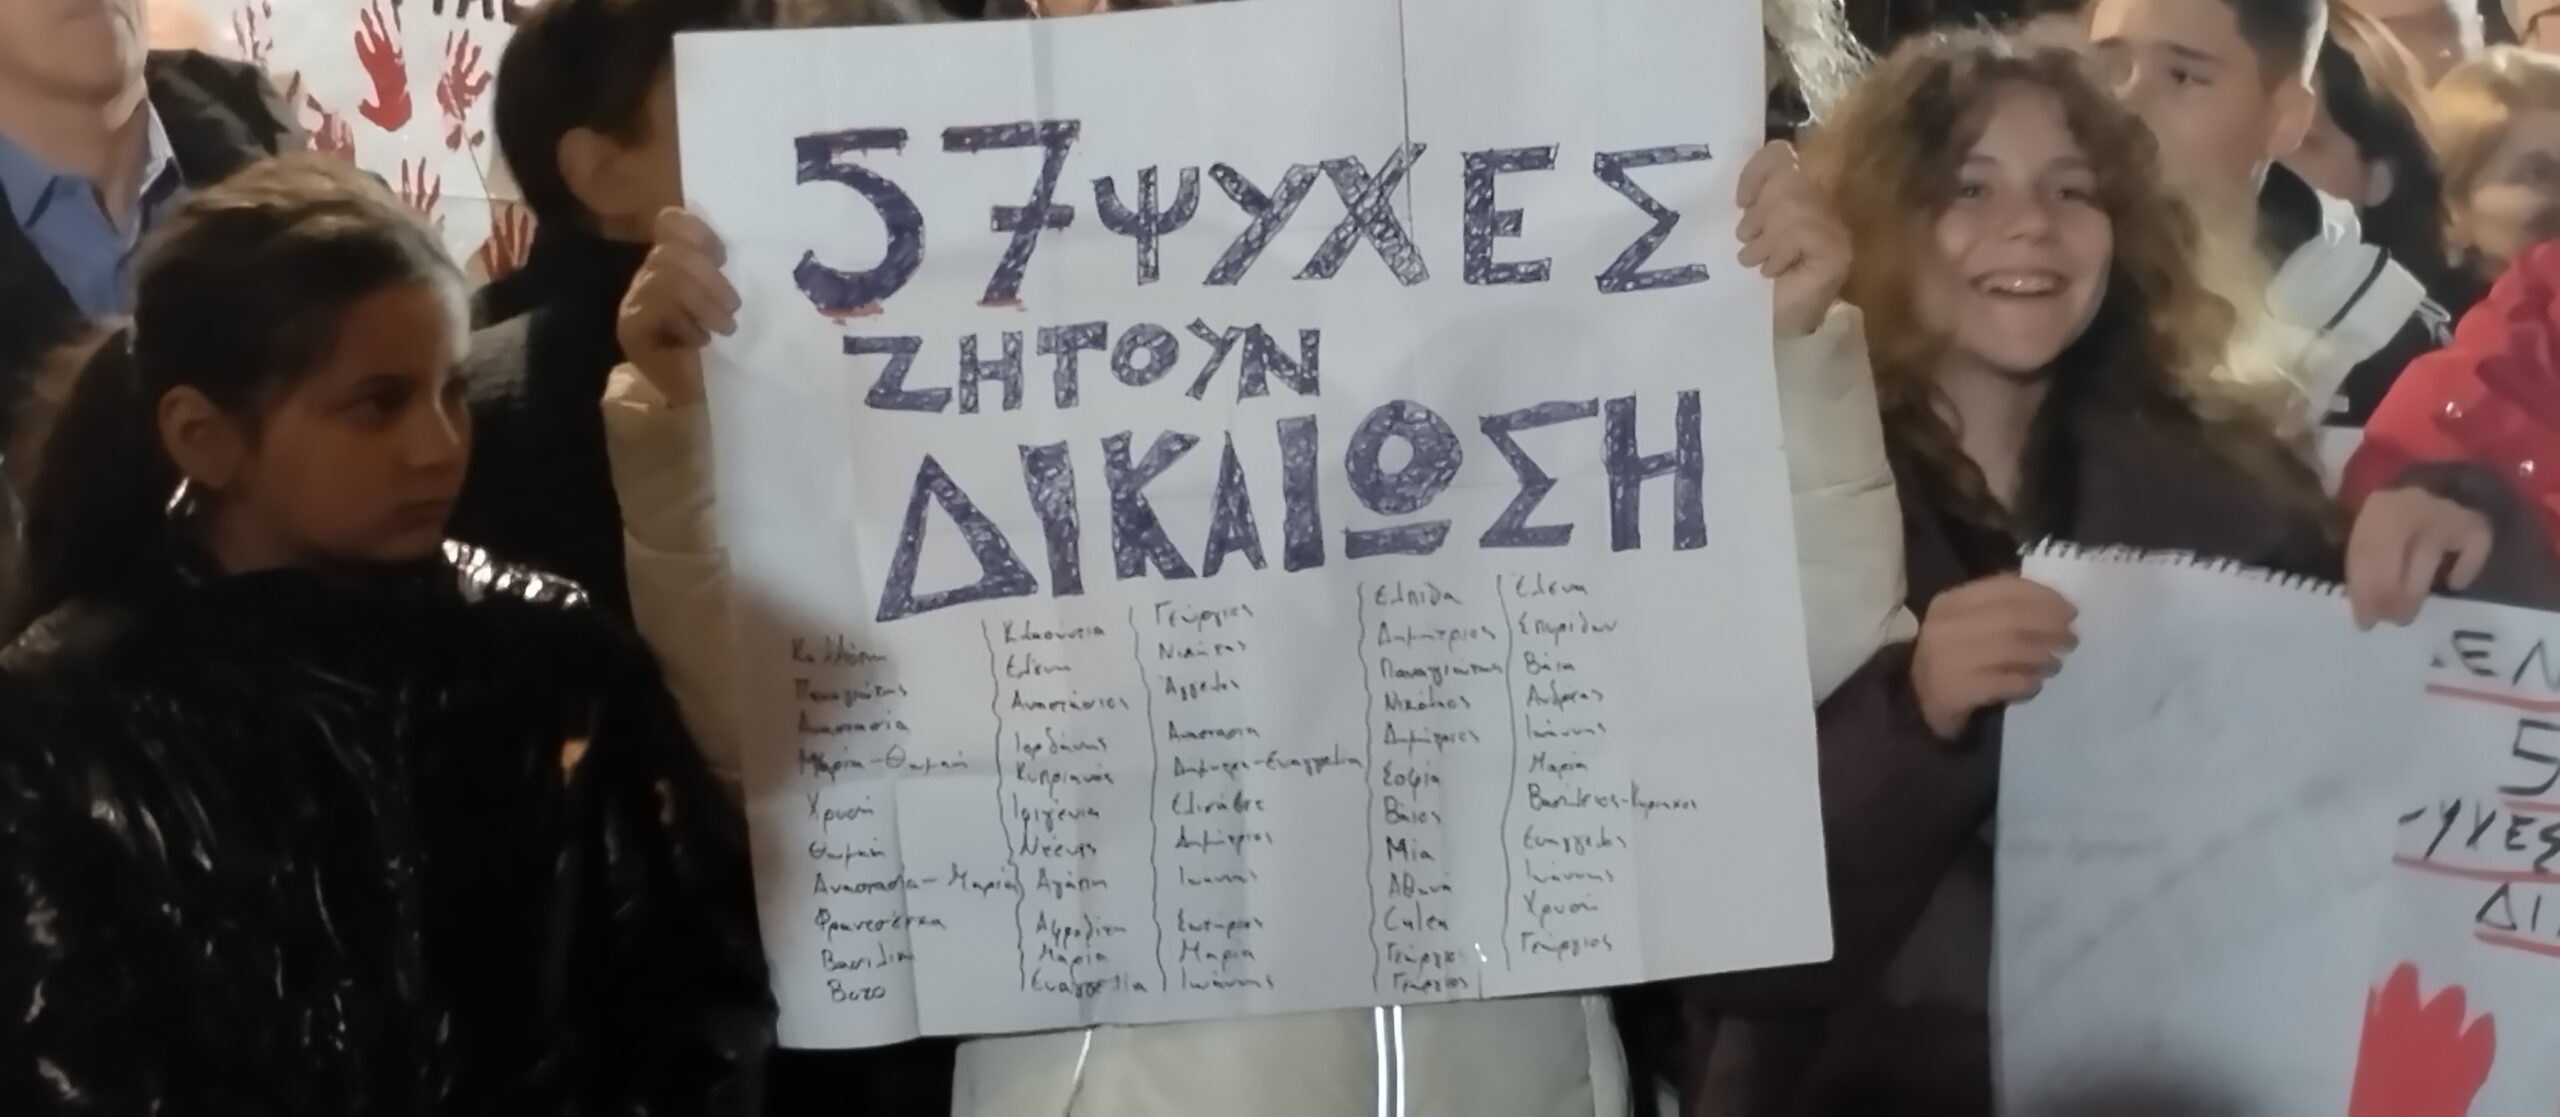 57 ΨΥΧΕΣ
ΖΗΤΟΥΝ
ΔΙΚΑΙΩΣΗ
Καλλιόπη
Παναγιώτης
Αναστασία
Μαρία-Θωμαή
Χρυσή
Θωμαή
Αναστασία-Μαρία
Φραντσέσκα
Βάιο
Κλεονυεια
Ελένη
Αναστάσιος
Ιορδάνης
Κυπριανός
Ιφιγένια
Ντένις
Αγάπη
Αφροδίτη
Μαρία
Ευαγγελία
Γεώργιος
Νικήτας
Άγγελος
Αναστασία
Δήμητρα-Ευαγγελία
Ελισάβετ
Δημήτριος
Ιωάννης
Σωτήριος
Μαρία
Ιωάννης
Ελπίδα
Δημήτριος
Παναγιώτης
Νικόλαος
Δημήτριος
Σοφία
Βάιος
Μία
Αθηνά
Γεώργιος
Γεώργιος
Έλενα
Σπυρίδων
Βάια
Ανδρέας
Ιωάννης
Μαρία
Βασίλειος-Κυριάκος
Ευάγγελος
Ιωάννης
Χρυσή
Γεώργιος
5
ΔΙ